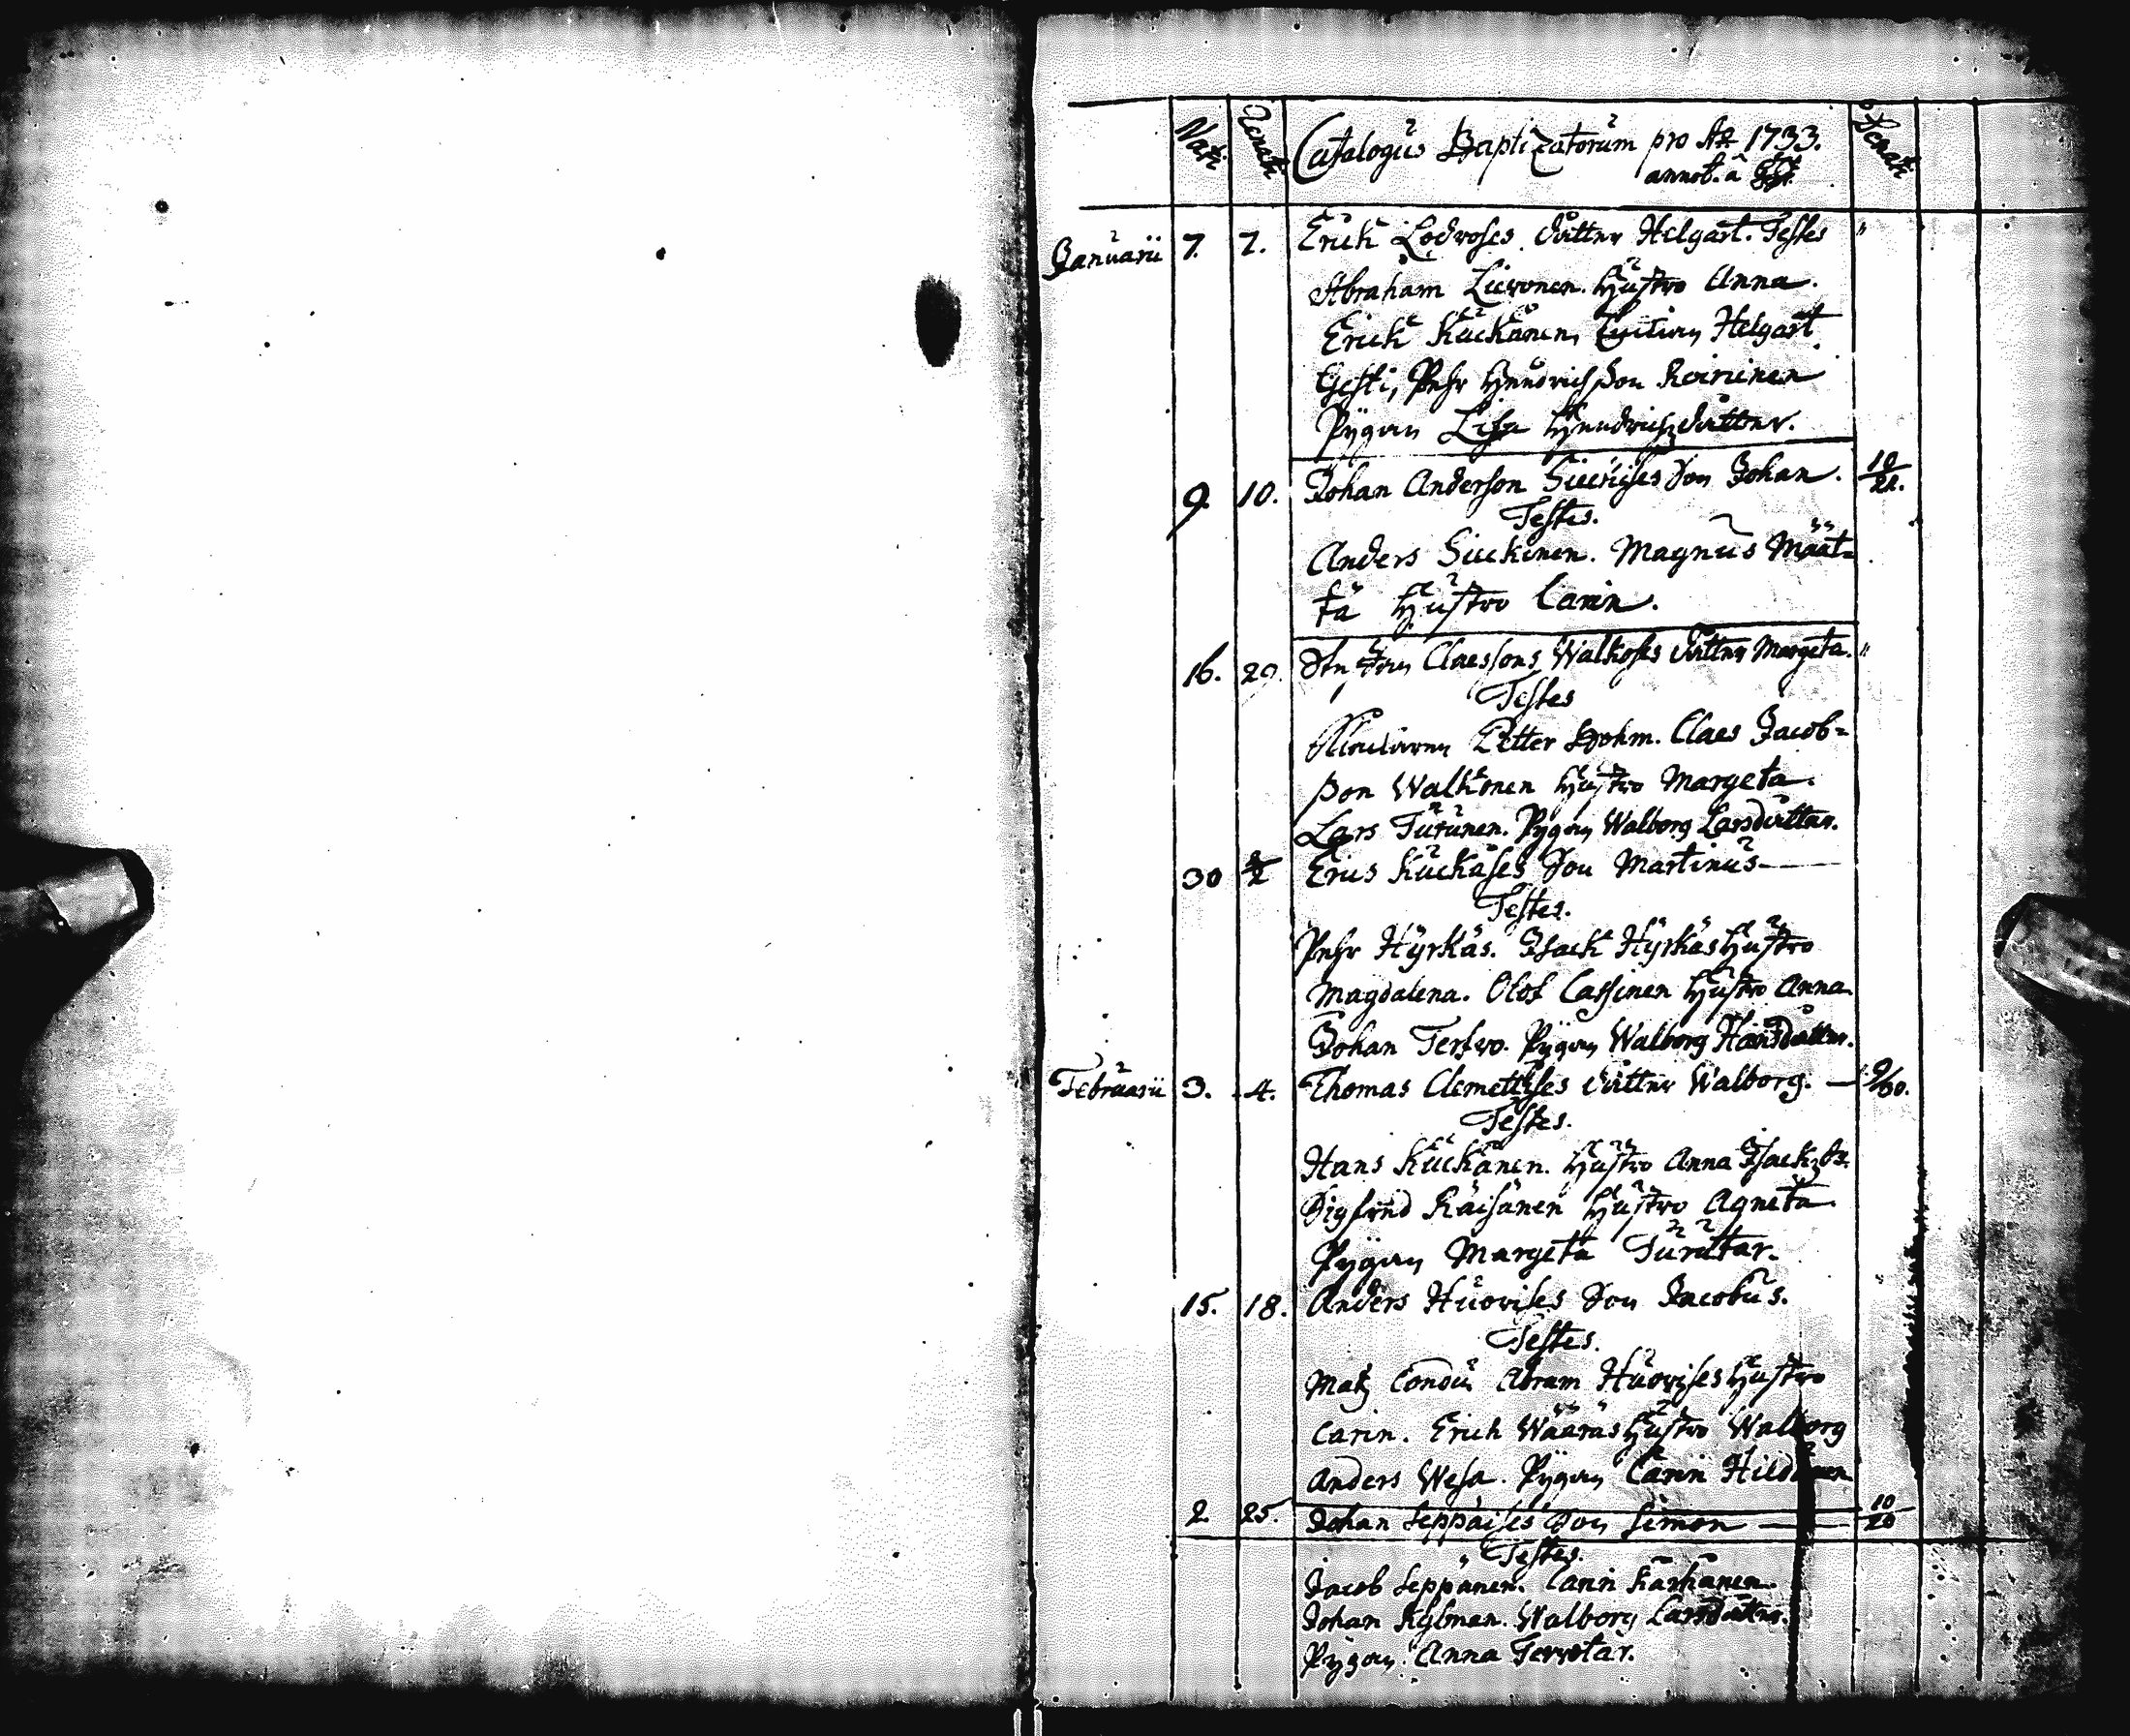 Nati Renati Catalogus Baptizatorum pro Ao 1733. Denati
annot. â
Januarii 7. 7. Erich Lodroses dotter Helgart. Testes "
Abraham Liuronen. Hustro Anna.
Erich Kuckånen, Helgart
Gesti, Pehr Hendrichsson Roirinen
Pijgan Lisa Hendrichzdotter.
9. 10. Johan Anderson Siecküses Son Johan. 10/21.
Testes.
Anders Siuckinen. Magnus Määt-
tä Hustro Carin.
16. 20. Claessons Walkoses dotter Margeta. "
Testes
Petter Bohm. Claes Jacob-
son Walkonen Hustro Margeta.
Lars Turunen. Pigan Walborg Larsdotter.
30 2/2 Erics Kuckåses Son Martinus
Testes.
Pehr Hyrkäs. Isack Hyrkäs Hustro
Magdalena. Olof Cassinen Hustro Anna
Johan Terfwo. Pijgan Walborg Hansdotter.
Februarii 3. 4. Thomas Clemettises dotter Walborg. 9/30.
Testes.
Hans Kuckånen. Hustro Anna Isackzdr.
Sigfred Räisänen Hustro Agneta.
Pijgan Margeta Turutar.
15. 18. Anders Huovises Son Jacobus.
Testes.
Matz Condu Abram Huovises Hustro
Carin. Erich Wäänäs Hustro Walborg
Anders Wesa. Pijgan Carin
2 25. Johan Seppäises Son Simon 10/20
Testes.
Jacob Seppänen. Carin Karhanen.
Johan Kylmen. Walborg Larsdotter.
Pijgan. Anna Terwotar.